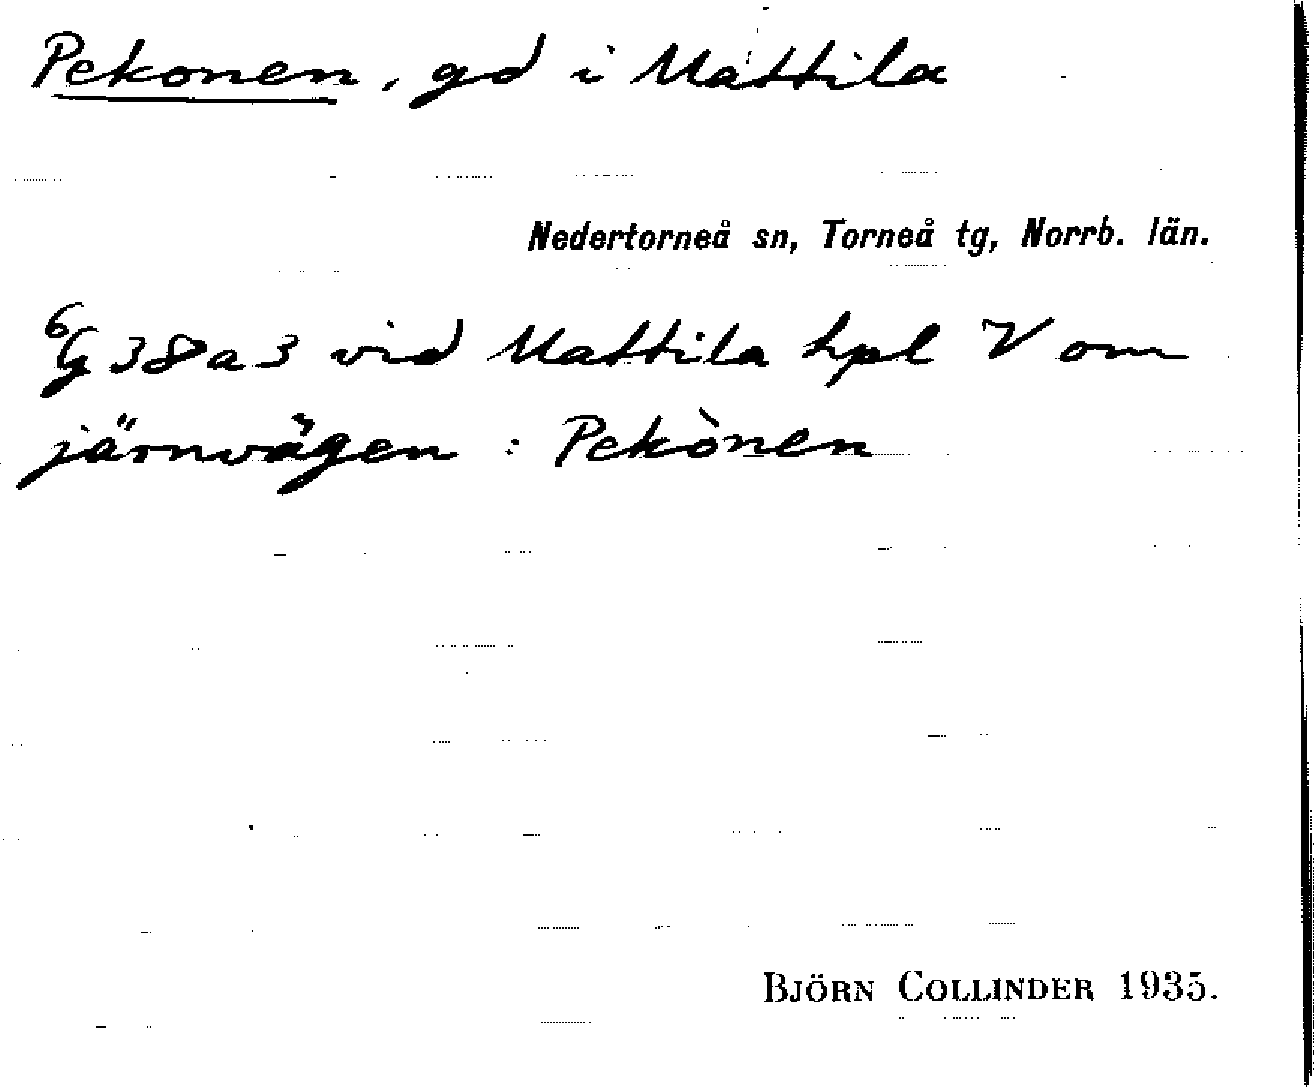 Pekonen, gd i Mattila
Nedertorneå sn, Torneå tg, Norrb. län.
6G38a3 vid Mattila hpl V om
järnvägen : Pekònen
BJÖRN COLLINDER 1935.